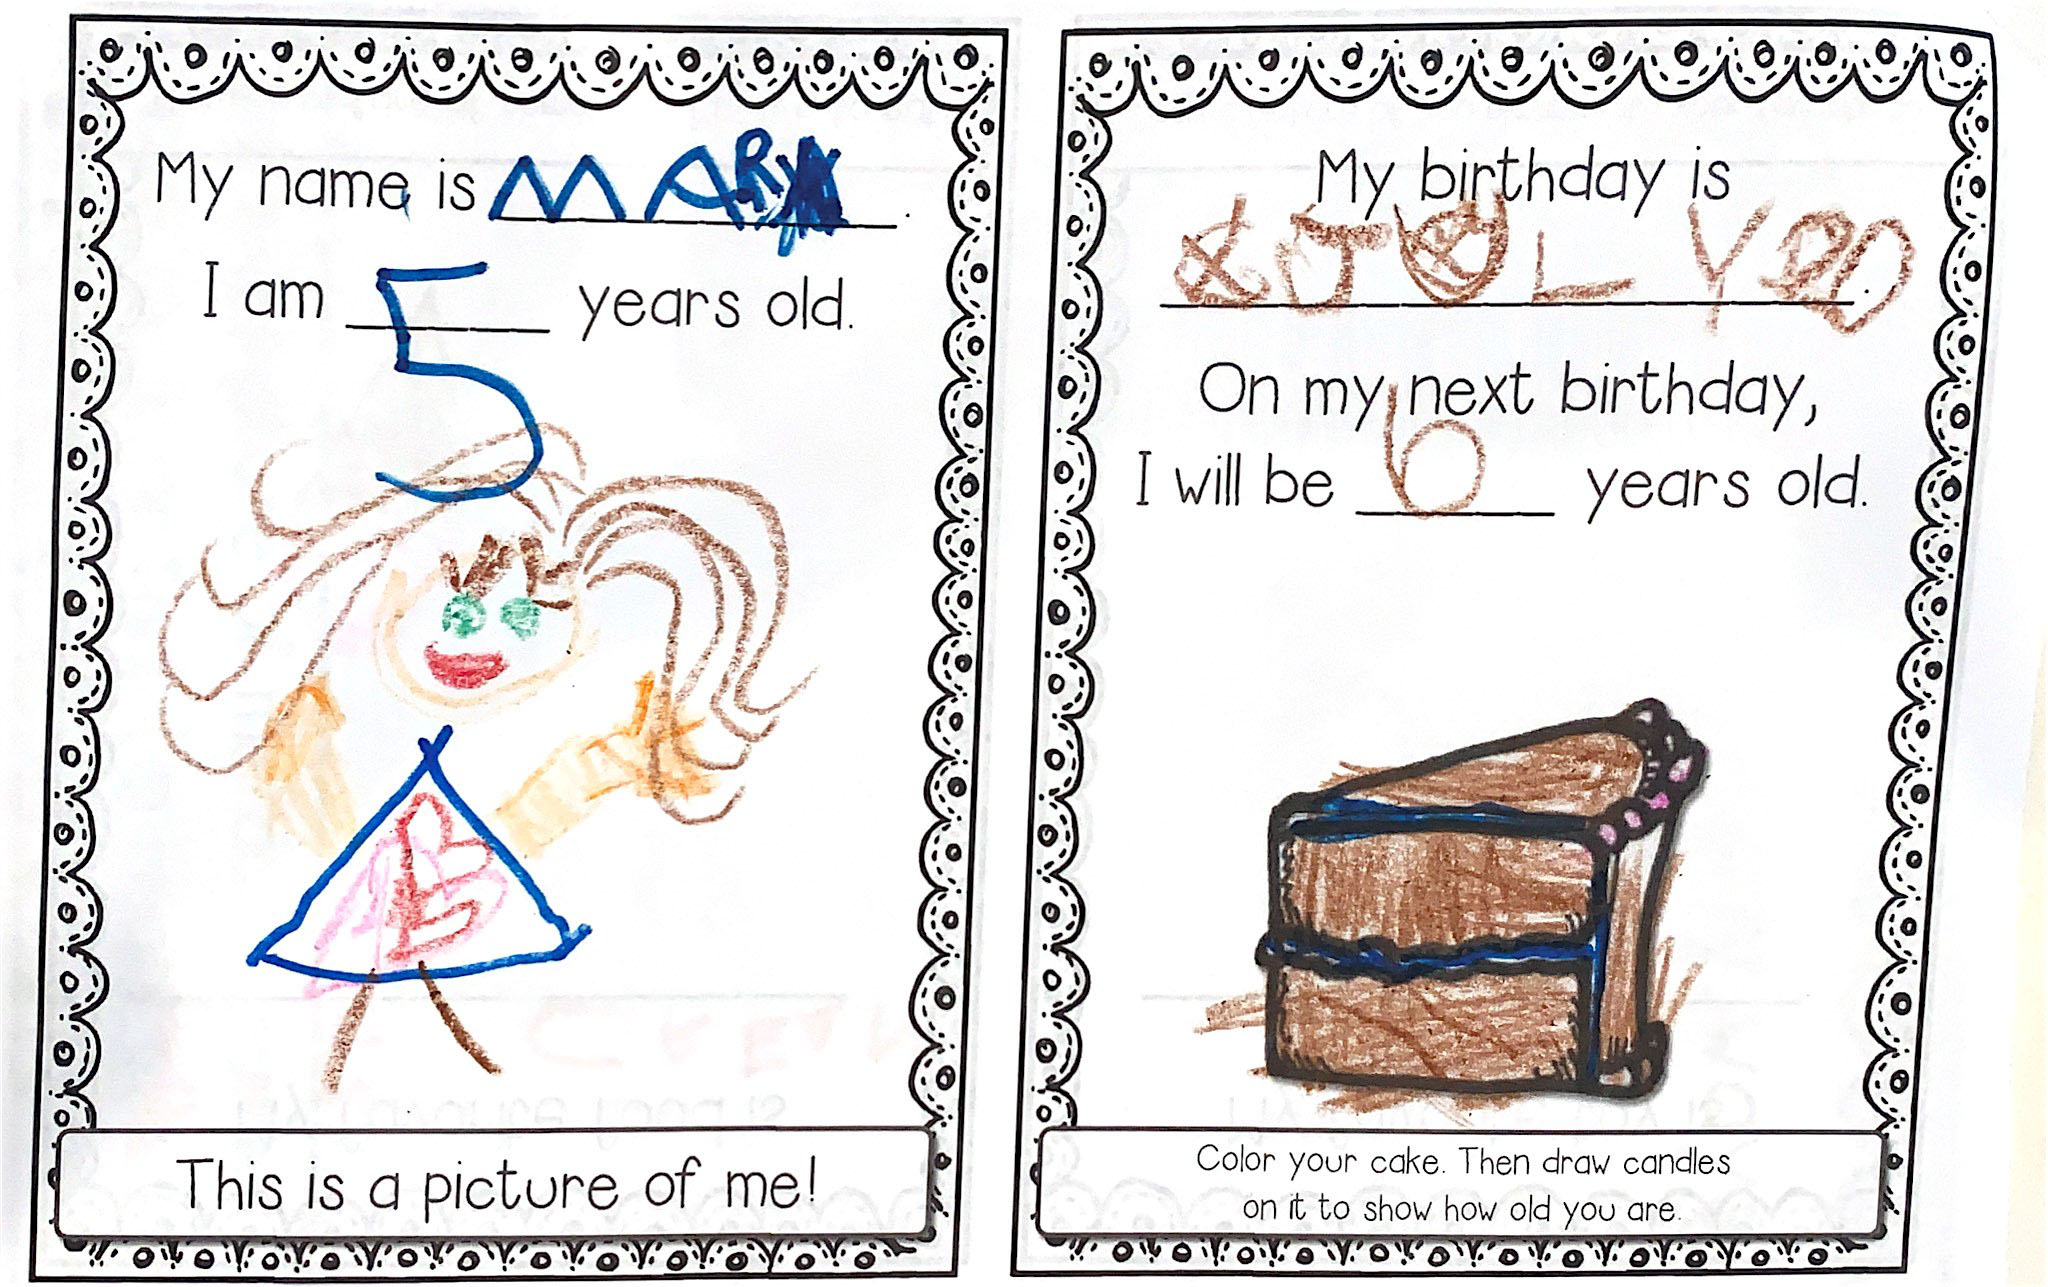 My name is MARY.
I am 5 years old.
This is a picture of me!
My birthday is
JUL Y
On my next birthday,
I will be 6 years old.
Color your cake. Then draw candles
on it to show how old you are.